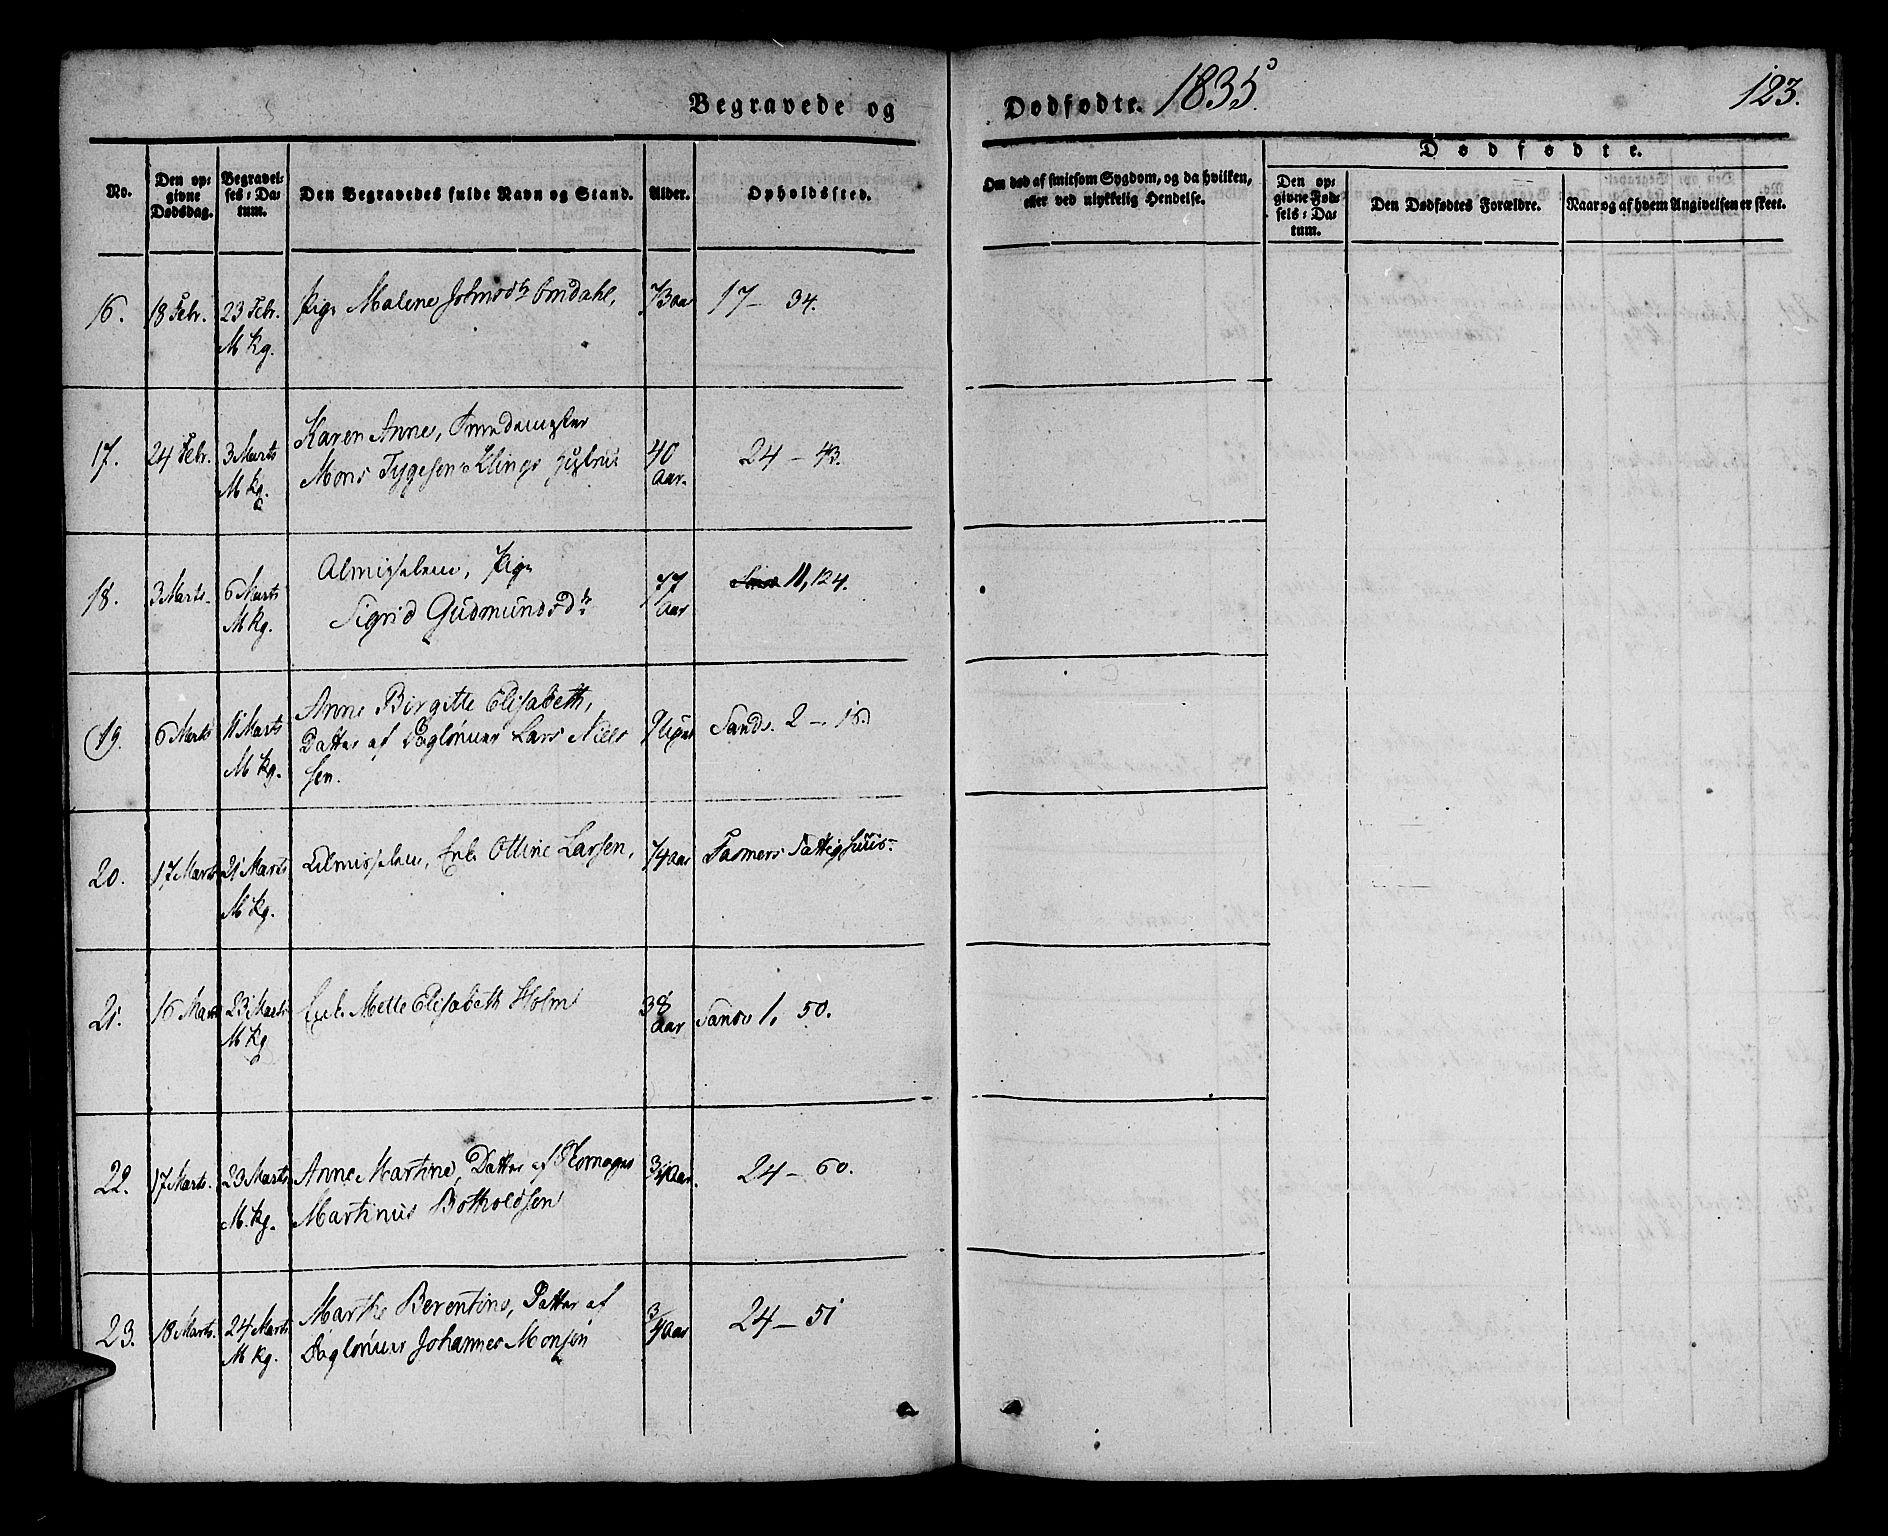 Begravede og Dødfødte. 1835. 123.
No.
Den opgivne Dødsdag.
Begravelses-Datum.
Den Begravedes fulde Navn og Stand.
Alder.
Opholdssted.
Om død af smitsom Sygdom, og da hvilken,
eller ved ulykkelig Hendelse.
Dødfødte.
Den opgivne Fødsels-Datum.
Den Dødfødtes Forældre.
Naar og af hvem Angivelsen er skeet.
16. 18 Febr. 23 Febr. Pige Malene Omdahl, 73 Aar 17 – 34.
M kg.
17. 24 Febr. 3 Marts Karen Anne,
M kg. Mons Tygesen Klings Hustrue 40 Aar. 24 – 43.
18. 3 Marts. 6 Marts Almisselem, Pige 77 Aar 11, 124.
M kg. Sigrid Gudmundsd.
19. 6 Marts 11 Marts Anne Birgitte Elisabeth,
M kg. Datter af Dagleinner Lars Niel-
sen. 9 Uger Sands. 2 – 16.
20. 17 Marts 21 Marts Almisselem, Enk. Olline Larsen, 74 Aar Fattighuus
M kg.
21. 16 Marts 23 Marts Enk. Mette Elisabeth Holm 38 Aar 1, 50.
M kg
22. 17 Marts. 23 Marts Anne Martine, Datter af Skomager 3/4 Aar. 24 – 60.
M. kg. Martinus Botholdsen
23. 18 Marts. 24 Marts Marthe Berentine, Datter af 3/4 Aar 24 – 51
M kg. Johannes Monsen